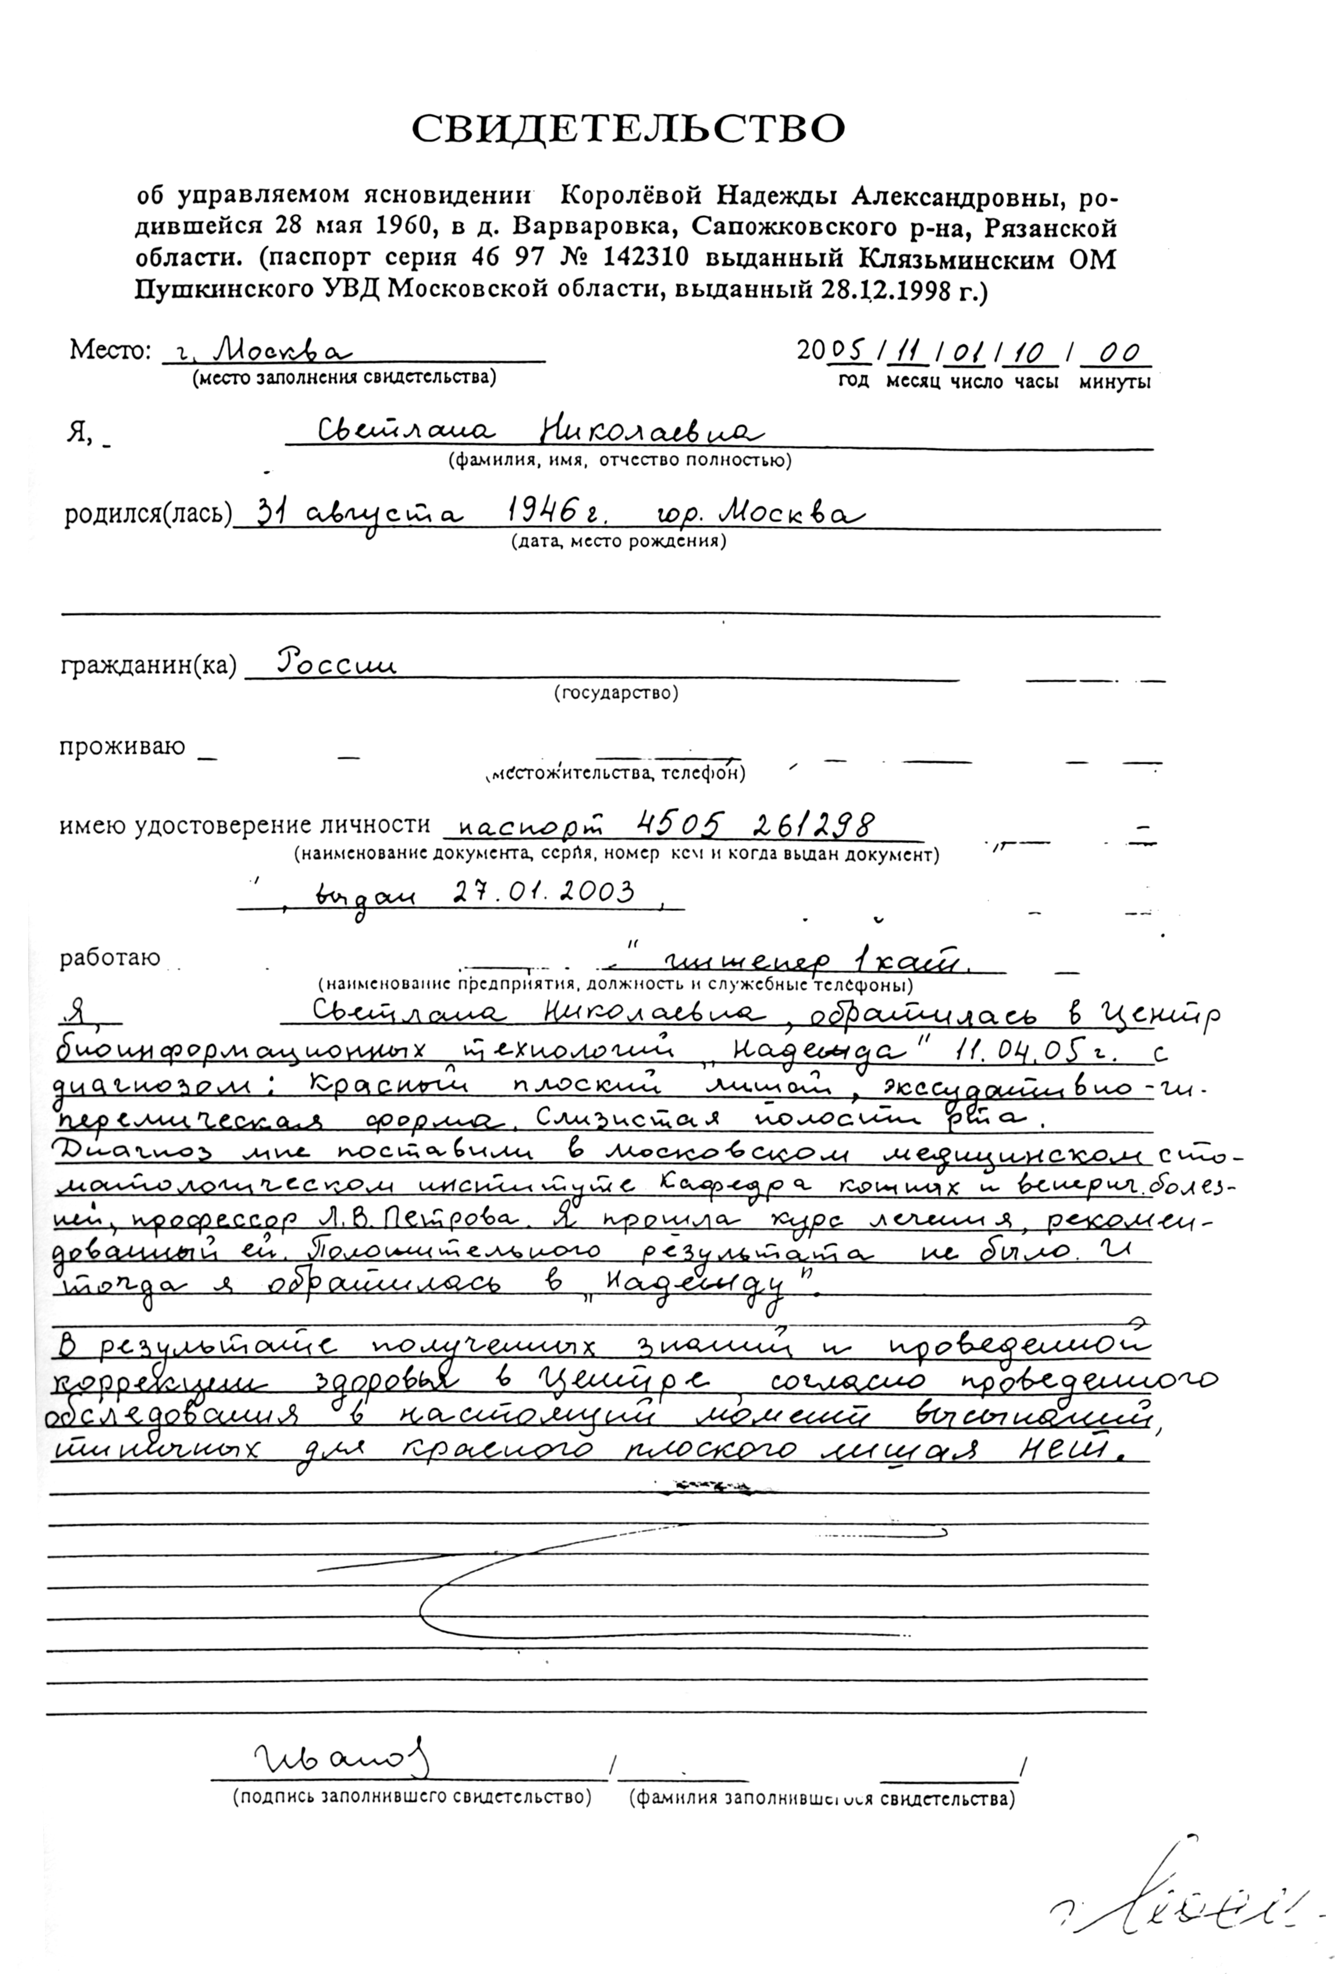 СВИДЕТЕЛЬСТВО
об управляемом ясновидении Королёвой Надежды Александровны, ро-
дившейся 28 мая 1960, в д. Варваровка, Сапожковского р-на, Рязанской
области. (паспорт серия 46 97 № 142310 выданный Клязьминским ОМ
Пушкинского УВД Московской области, выданный 28.12.1998 г.)
Место: г. Москва 2005/11/01/10/00
(место заполнения свидетельства) год месяц число часы минуты
Я, Светлана Николаевна
(фамилия, имя, отчество полностью)
родился(лась) 31 августа 1946 г. гор. Москва
(дата, место рождения)
гражданин(ка) России
(государство)
проживаю
(местожительства, телефон)
имею удостоверение личности паспорт 4505 261298
(наименование документа, серия, номер кем и когда выдан документ)
, выдан 27.01.2003,
работаю " инженер 1 кат.
(наименование предприятия, должность и служебные телефоны)
Я, Светлана Николаевна, обратилась в Центр
биоинформационных технологий „Надежда" 11.04.05 г. с
диагнозом: Красный плоский лишай, экссудативно-ги-
перемическая форма. Слизистая полости рта.
Диагноз мне поставили в Московском медицинском сто-
матологическом институте Кафедра кожных и венерич. болез-
ней, профессор Л.В. Петрова. Я прошла курс лечения, рекомен-
дованный ей. Положительного результата не было. И
тогда я обратилась в „Надежду".
В результате полученных знаний и проведенной
коррекции здоровья в Центре, согласно проведенного
обследования в настоящий момент высыпаний,
типичных для красного плоского лишая нет.
Иванов / /
(подпись заполнившего свидетельство) (фамилия заполнившегося свидетельства)